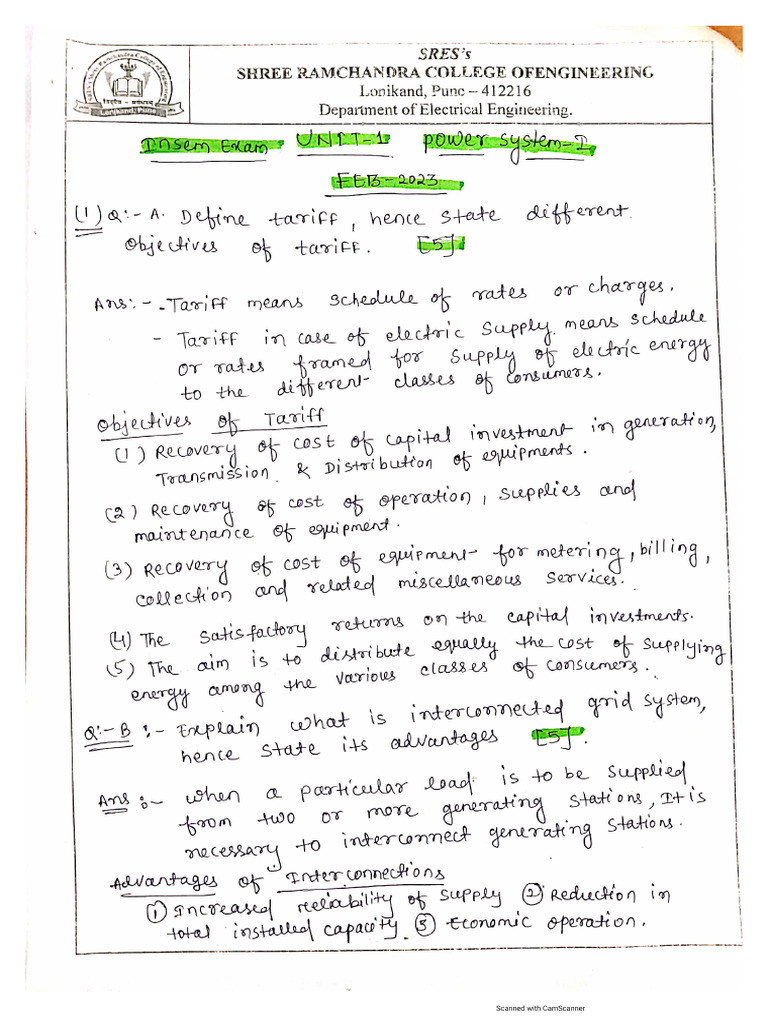 SRES's
SHREE RAMCHANDRA COLLEGE OFENGINEERING
Lonikand, Pune – 412216
Department of Electrical Engineering.
Insem Exam UNIT-1 power system-I
FEB-2023
(1) Q:- A. Define tariff, hence state different
objectives of tariff. [5]
Ans:- - Tariff means schedule of rates or charges.
- Tariff in case of electric supply means schedule
or rates framed for supply of electric energy
to the different classes of consumers.
Objectives of Tariff
(1) Recovery of cost of capital investment in generation,
Transmission & Distribution of equipments.
(2) Recovery of cost of operation, supplies and
maintenance of equipment.
(3) Recovery of cost of equipment for metering, billing,
collection and related miscellaneous services.
(4) The satisfactory returns on the capital investments.
(5) The aim is to distribute equally the cost of supplying
energy among the various classes of consumers.
Q:- B :- Explain what is interconnected grid system,
hence state its advantages [5].
Ans :- when a particular load is to be supplied
from two or more generating stations, It is
necessary to interconnect generating stations.
Advantages of Interconnections
① Increased reliability of supply ② Reduction in
total installed capacity ③ Economic operation.
Scanned with CamScanner